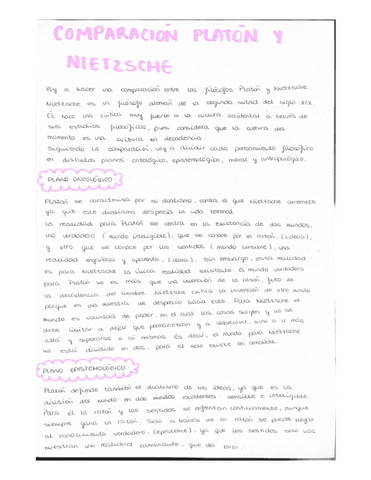 COMPARACIÓN PLATÓN Y
NIETZSCHE
Voy a hacer una comparación entre los filósofos Platón y Nietzsche.
Nietzsche es un filósofo alemán de la segunda mitad del siglo XIX.
Él hace una crítica muy fuerte a la cultura occidental a través de
sus estudios filosóficos, pues considera que la cultura del
momento es una cultura en decadencia.
Siguiendo la comparación, voy a dividir cada pensamiento filosófico
en distintos planos: ontológico, epistemológico, moral y antropológico.
PLANO ONTOLÓGICO
Platón se caracteriza por su dualismo, contra el que Nietzsche arremete
ya que este dualismo desprecia la vida terrenal.
La realidad para Platón se centra en la existencia de dos mundos,
uno verdadero (mundo inteligible), que se conoce por la razón, (ideas),
y otro que se conoce por los sentidos (mundo sensible), una
realidad engañosa y aparente, (doxa). Sin embargo, esta realidad
es para Nietzsche la única realidad existente. El mundo verdadero
para Platón no es más que una invención de la razón, fruto de
la decadencia del hombre. Nietzsche critica la invención de otro mundo
porque es una muestra de desprecio hacia este. Para Nietzsche el
mundo es voluntad de poder, en el cual las cosas surgen y no se
debe limitar a dejar que permanezcan y a sobrevivir, sino a ir más
allá y superarse a sí mismos. Es decir, el mundo para Nietzsche
no está dividido en dos, para él solo existe en sensible.
PLANO EPISTEMOLÓGICO
Platón defiende también el dualismo de las ideas, ya que es la
división del mundo en dos mundos existentes: sensible e inteligible.
Para él la razón y los sentidos se enfrentan continuamente, aunque
siempre gana la razón. Solo a través de la razón se puede llegar
al conocimiento verdadero, (episteme), ya que los sentidos solo nos
muestran una realidad cambiante, que da error.